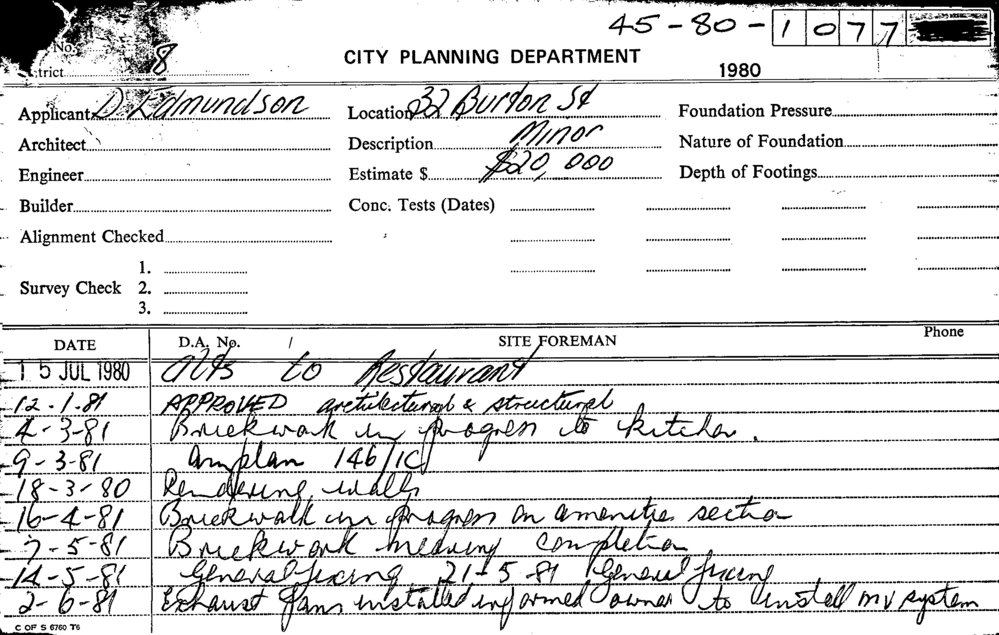 45-80-1077
No.
trict 8
CITY PLANNING DEPARTMENT
1980
Applicant D. Edmundson
Location 32 Burton St
Foundation Pressure
Architect
Description Minor
Nature of Foundation
Engineer
Estimate $ $20,000
Depth of Footings
Builder
Conc. Tests (Dates)
Alignment Checked
Survey Check
1.
2.
3.
DATE D.A. No. / SITE FOREMAN Phone
15 JUL 1980 Alts to Restaurant
12-1-81 APPROVED architectural & structural
4-3-81 Brickwork in progress to kitchen.
9-3-81 plan 146/1C
18-3-80 Rendering walls
16-4-81 Brickwalk in progress on amenities section
7-5-81 Brickwork nearing completion
14-5-81 General fixing 21-5-81 General fixing
2-6-81 Exhaust fans installed informed owner to install mv system
C OF S 6760 T6